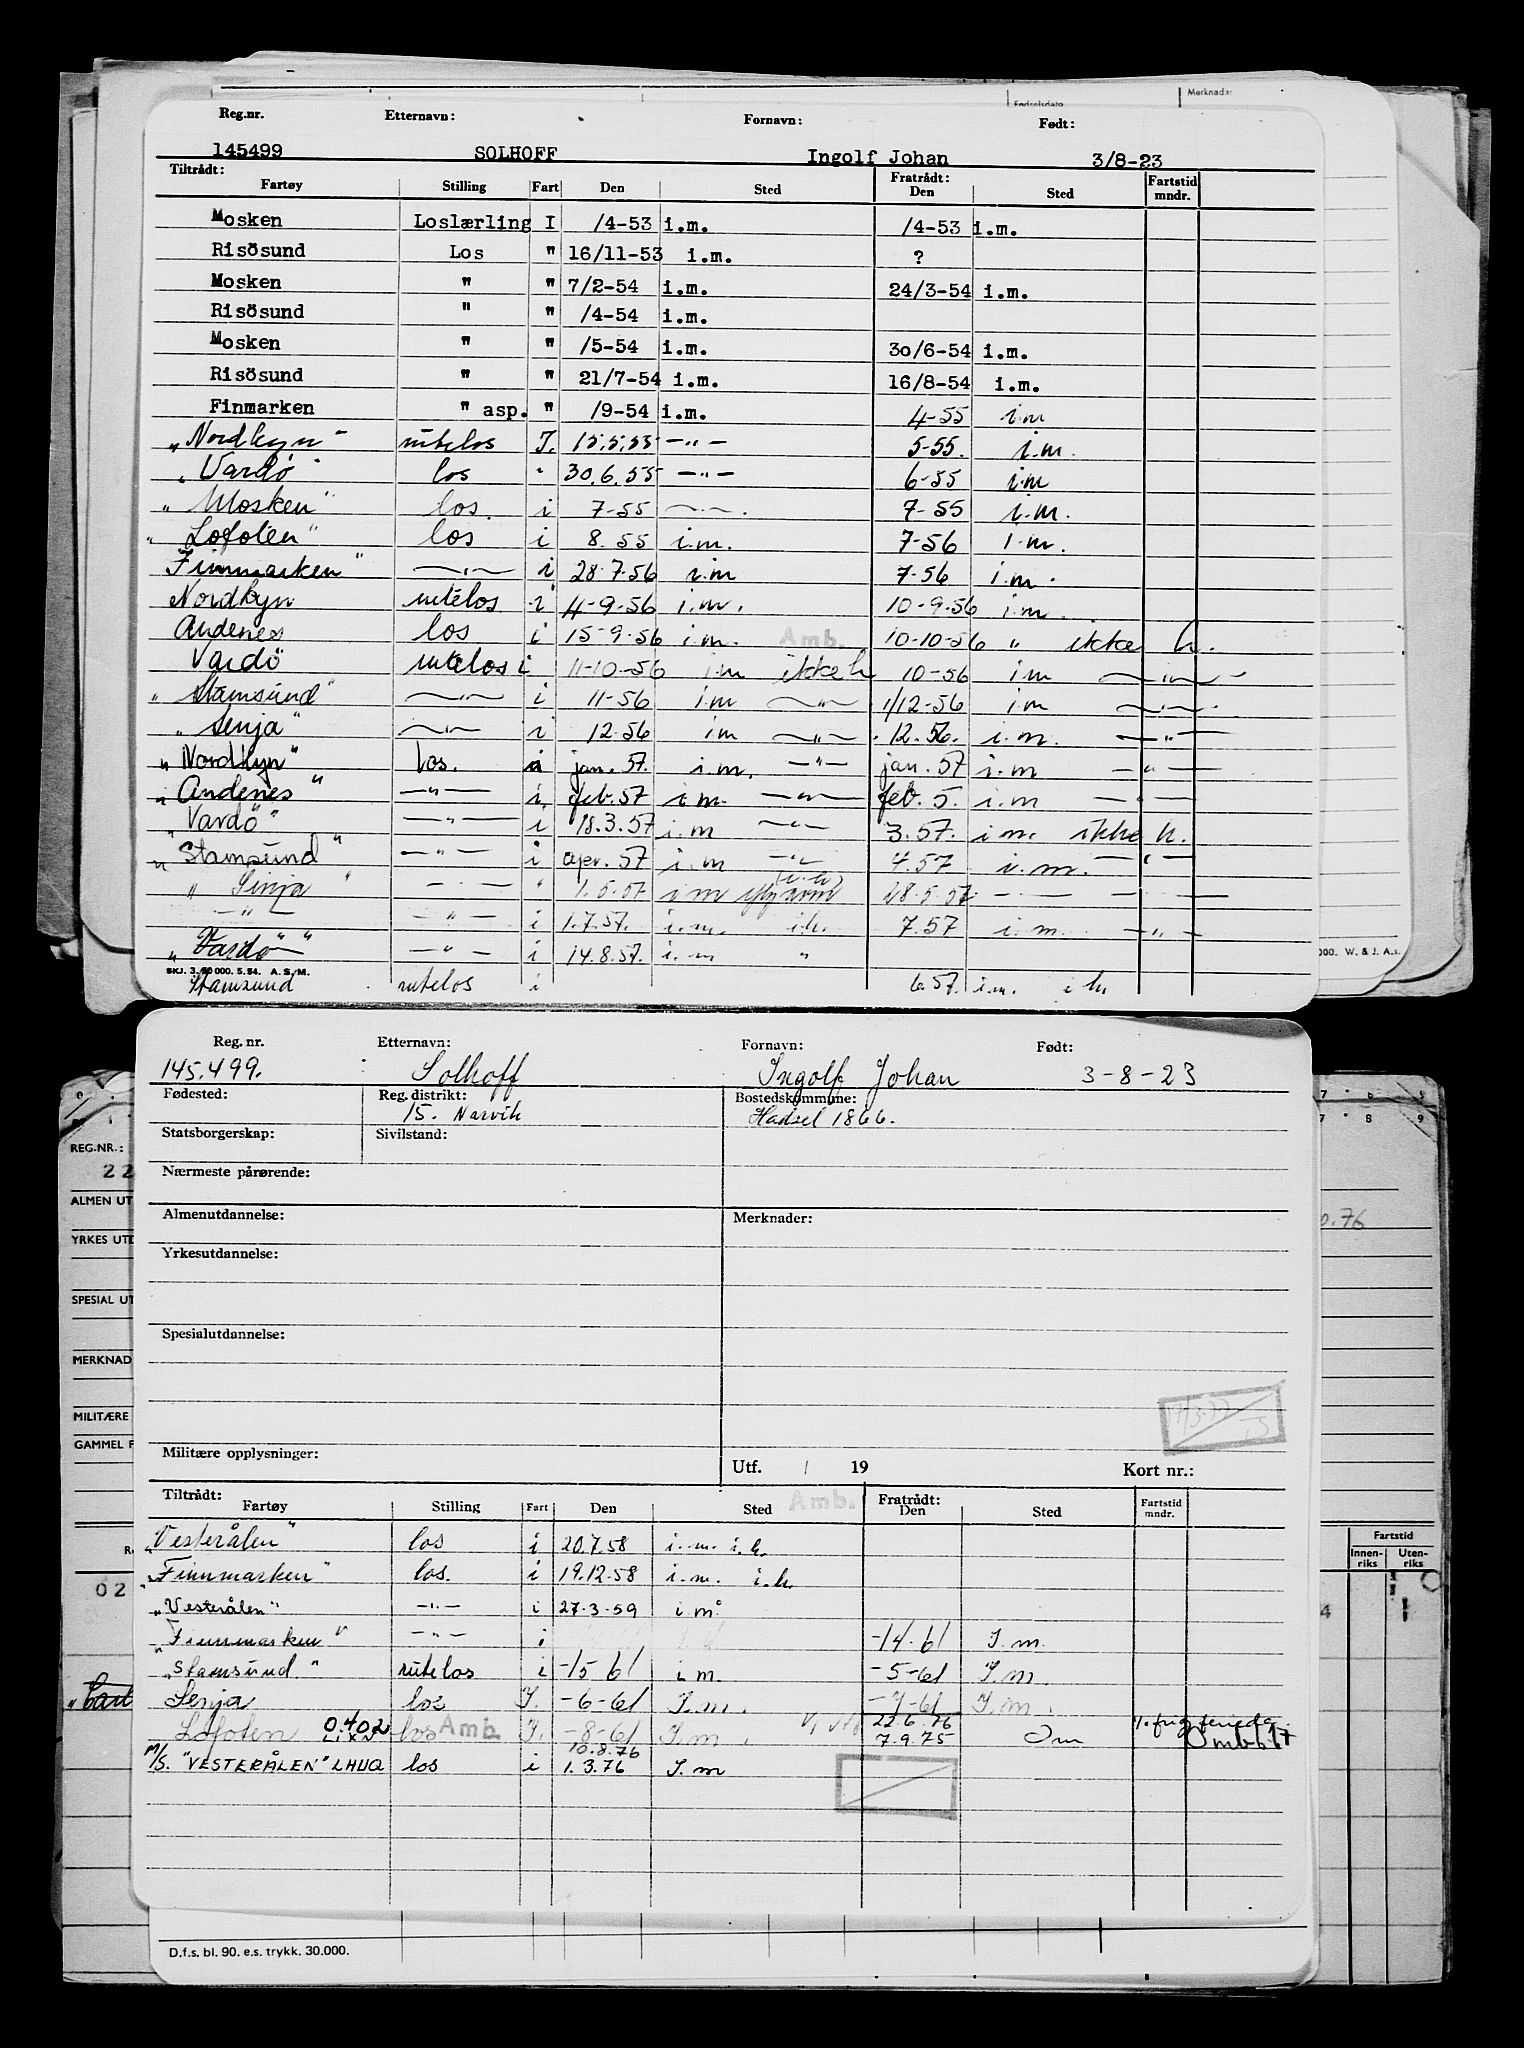 Fødselsdato Merknader
Reg.nr. Etternavn: Fornavn: Født:
145499 SOLHOFF Ingolf Johan 3/8-23
Tiltrådt: Fratrådt:
Fartøy Stilling Fart Den Sted Den Sted Fartstid mndr.
Mosken Loslærling I /4-53 i.m. /4-53 i.m.
Risösund Los " 16/11-53 i.m. ?
Mosken " " 7/2-54 i.m. 24/3-54 i.m.
Risösund " " /4-54 i.m.
Mosken " " /5-54 i.m. 30/6-54 i.m.
Risösund " " 21/7-54 i.m. 16/8-54 i.m.
Finmarken " asp. " /9-54 i.m. 4-55 i.m
"Nordkyn" rutelos I. 15.5.55 —"— 5-55. i.m.
"Vardø" los " 30.6.55 —"— 6-55 i.m
"Mosken" los. i 7-55 —"— 7-55 i.m.
"Lofoten" los i 8.55 i.m. 7-56 i.m.
Finnmarken" —"— i 28.7.56 i.m 7-56 i.m.
Nordkyn rutelos i 4-9-56 i.m. 10-9-56 i.m.
Andenes los i 15-9-56 i.m. Amb. 10-10-56 " ikke h.
Vardö rutelos i 11-10-56 i.m ikke h 10-56 i.m —"—
"Stamsund" —"— i 11-56 i.m —"— 1/12-56 i.m —"—
"Senja" —"— i 12.56 i.m —"— 12.56. i.m. —"—
"Nordkyn" los. i jan. 57. i.m. —"— jan. 57 i.m —"—
"Andenes" —"— i. feb. 57 i.m. —"— feb. 5. i.m —"—
"Vardö" —"— i 18.3.57 i.m —"— 3.57. i.m. ikke h.
"Stamsund" —"— i apr. 57 i.m —"— 4.57 i.m. —"—
"Senja" —"— " 1.5.57 i.m (i.h) 28.5.57 —"— —"—
—"— —"— i 1.7.57. i.m. i.h. 7.57 i.m. —"—
"Vardø" —"— i 14.8.57. i.m "
SKJ. 3. 50 000. 5. 54. A. S. M. 000. W. & J. A.s.
Stamsund rutelos i 6.57. i.m. i h.
Reg. nr. Etternavn: Fornavn: Født:
145.499. Solhoff Ingolf Johan 3-8-23
Fødested: Reg. distrikt: Bostedskommune:
15. Narvik Hadsel 1866.
Statsborgerskap: Sivilstand:
Nærmeste pårørende:
Almenutdannelse: Merknader:
Yrkesutdannelse:
Spesialutdannelse:
Militære opplysninger: Utf. / 19 Kort nr.:
Tiltrådt: Amb. Fratrådt:
Fartøy Stilling Fart Den Sted Den Sted Fartstid mndr.
"Vesterålen" los i 20.7.58 i.m. i.h.
"Finnmarken" los. i 19.12.58 i.m. i.h.
"Vesterålen" —"— i 27-3-59 i.m.
"Finnmarken" —"— i -14-61 I.m.
"Stamsund." rutelos i -15 61 i.m. -5-61 I.m
Senja los I. -6-61 I.m. -7-61 I.m.
Lofoten 0402 LIXN los Amb. I. -8-61 I.m. 22.6.76
7.9.75 Om
M/S. "VESTERÅLEN" LHUQ los i 10.8.76
1.3.76 I.m
D.f.s. bl. 90. e.s. trykk. 30.000.
REG.NR.:
22
ALMEN UT
YRKES UTD
SPESIAL UT
MERKNAD
MILITÆRE
GAMMEL F
02
0.76
Fartstid
Innenriks Utenriks
4